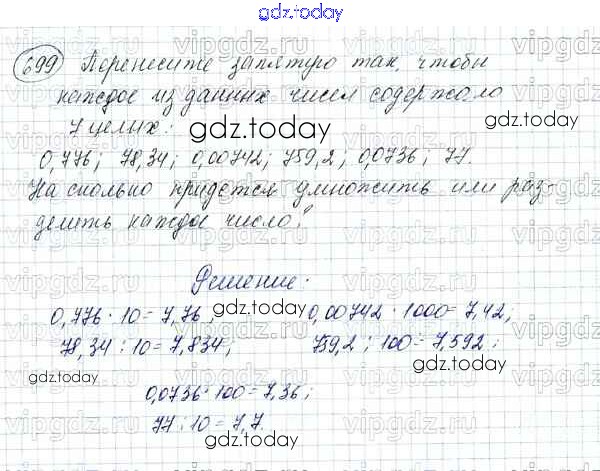 gdz.today
699 Перенесите запятую так, чтобы
каждое из данных чисел содержало
7 целых:
gdz.today
0,776; 78,34; 0,00742; 759,2; 0,0736; 77.
На сколько придётся умножить или раз-
делить каждое число?
gdz.today
Решение.
0,776 · 10 = 7,76; 0,00742 · 1000 = 7,42;
gdz.today
78,34 : 10 = 7,834; 759,2 : 100 = 7,592;
gdz.today gdz.today
0,0736 · 100 = 7,36;
77 : 10 = 7,7.
gdz.today
vipgdz.ru